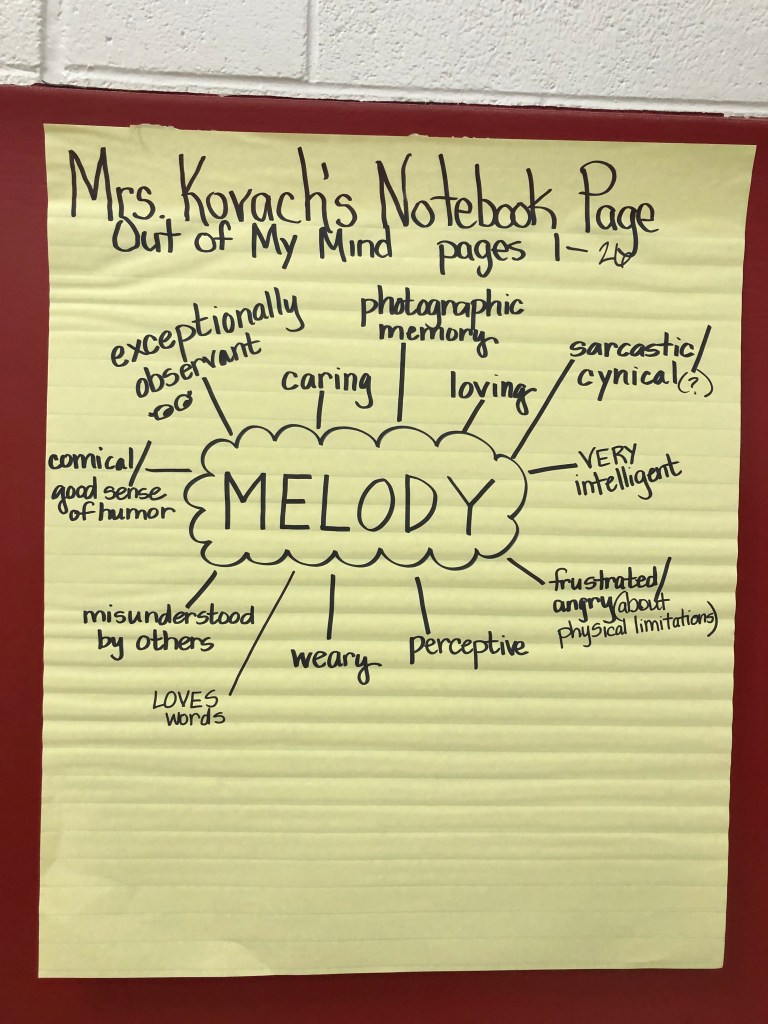 Mrs. Kovach's Notebook Page
Out of My Mind pages 1-26
exceptionally
observant
caring
photographic
memory
loving
sarcastic/
cynical(?)
comical/
good sense
of humor
MELODY
VERY
intelligent
misunderstood
by others
LOVES
words
weary
perceptive
frustrated/
angry (about
physical limitations)